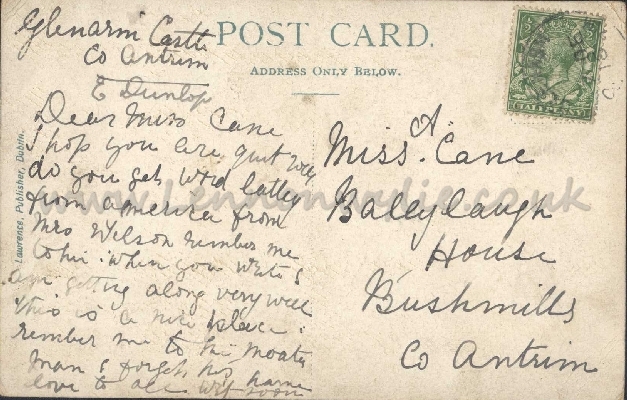 Glenarm Castle
Co Antrim
E Dunlop
POST CARD.
ADDRESS ONLY BELOW.
Dear Miss Cane
I hop you are quit well
do you get word latley
from america from
Mrs Welson rember me
to him when you write I
am getting along very well
this is a nice place.
rember me to the
man I forget his name
love to all wrt soon
Miss. A. Cane
Baleylaugh
House
Bushmills
Co Antrim
Lawrence, Publisher, Dublin.
www.Lennonwylie.co.uk
HALFPENNY